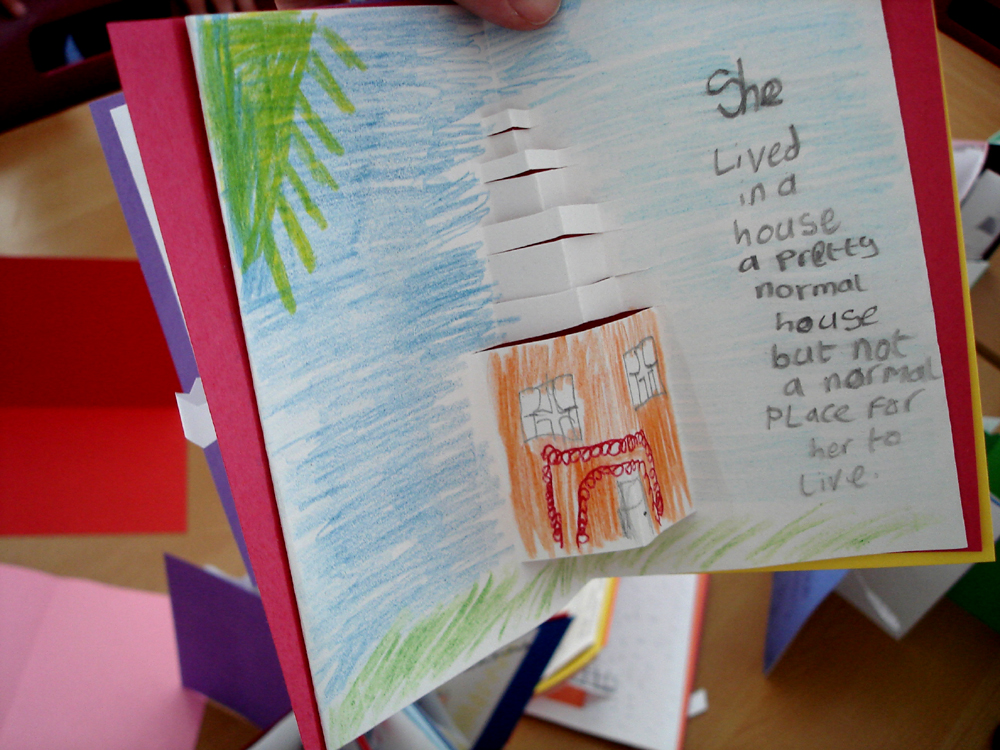 She
Lived
in a
house
a pretty
normal
house
but not
a normal
PLace For
her to
Live.